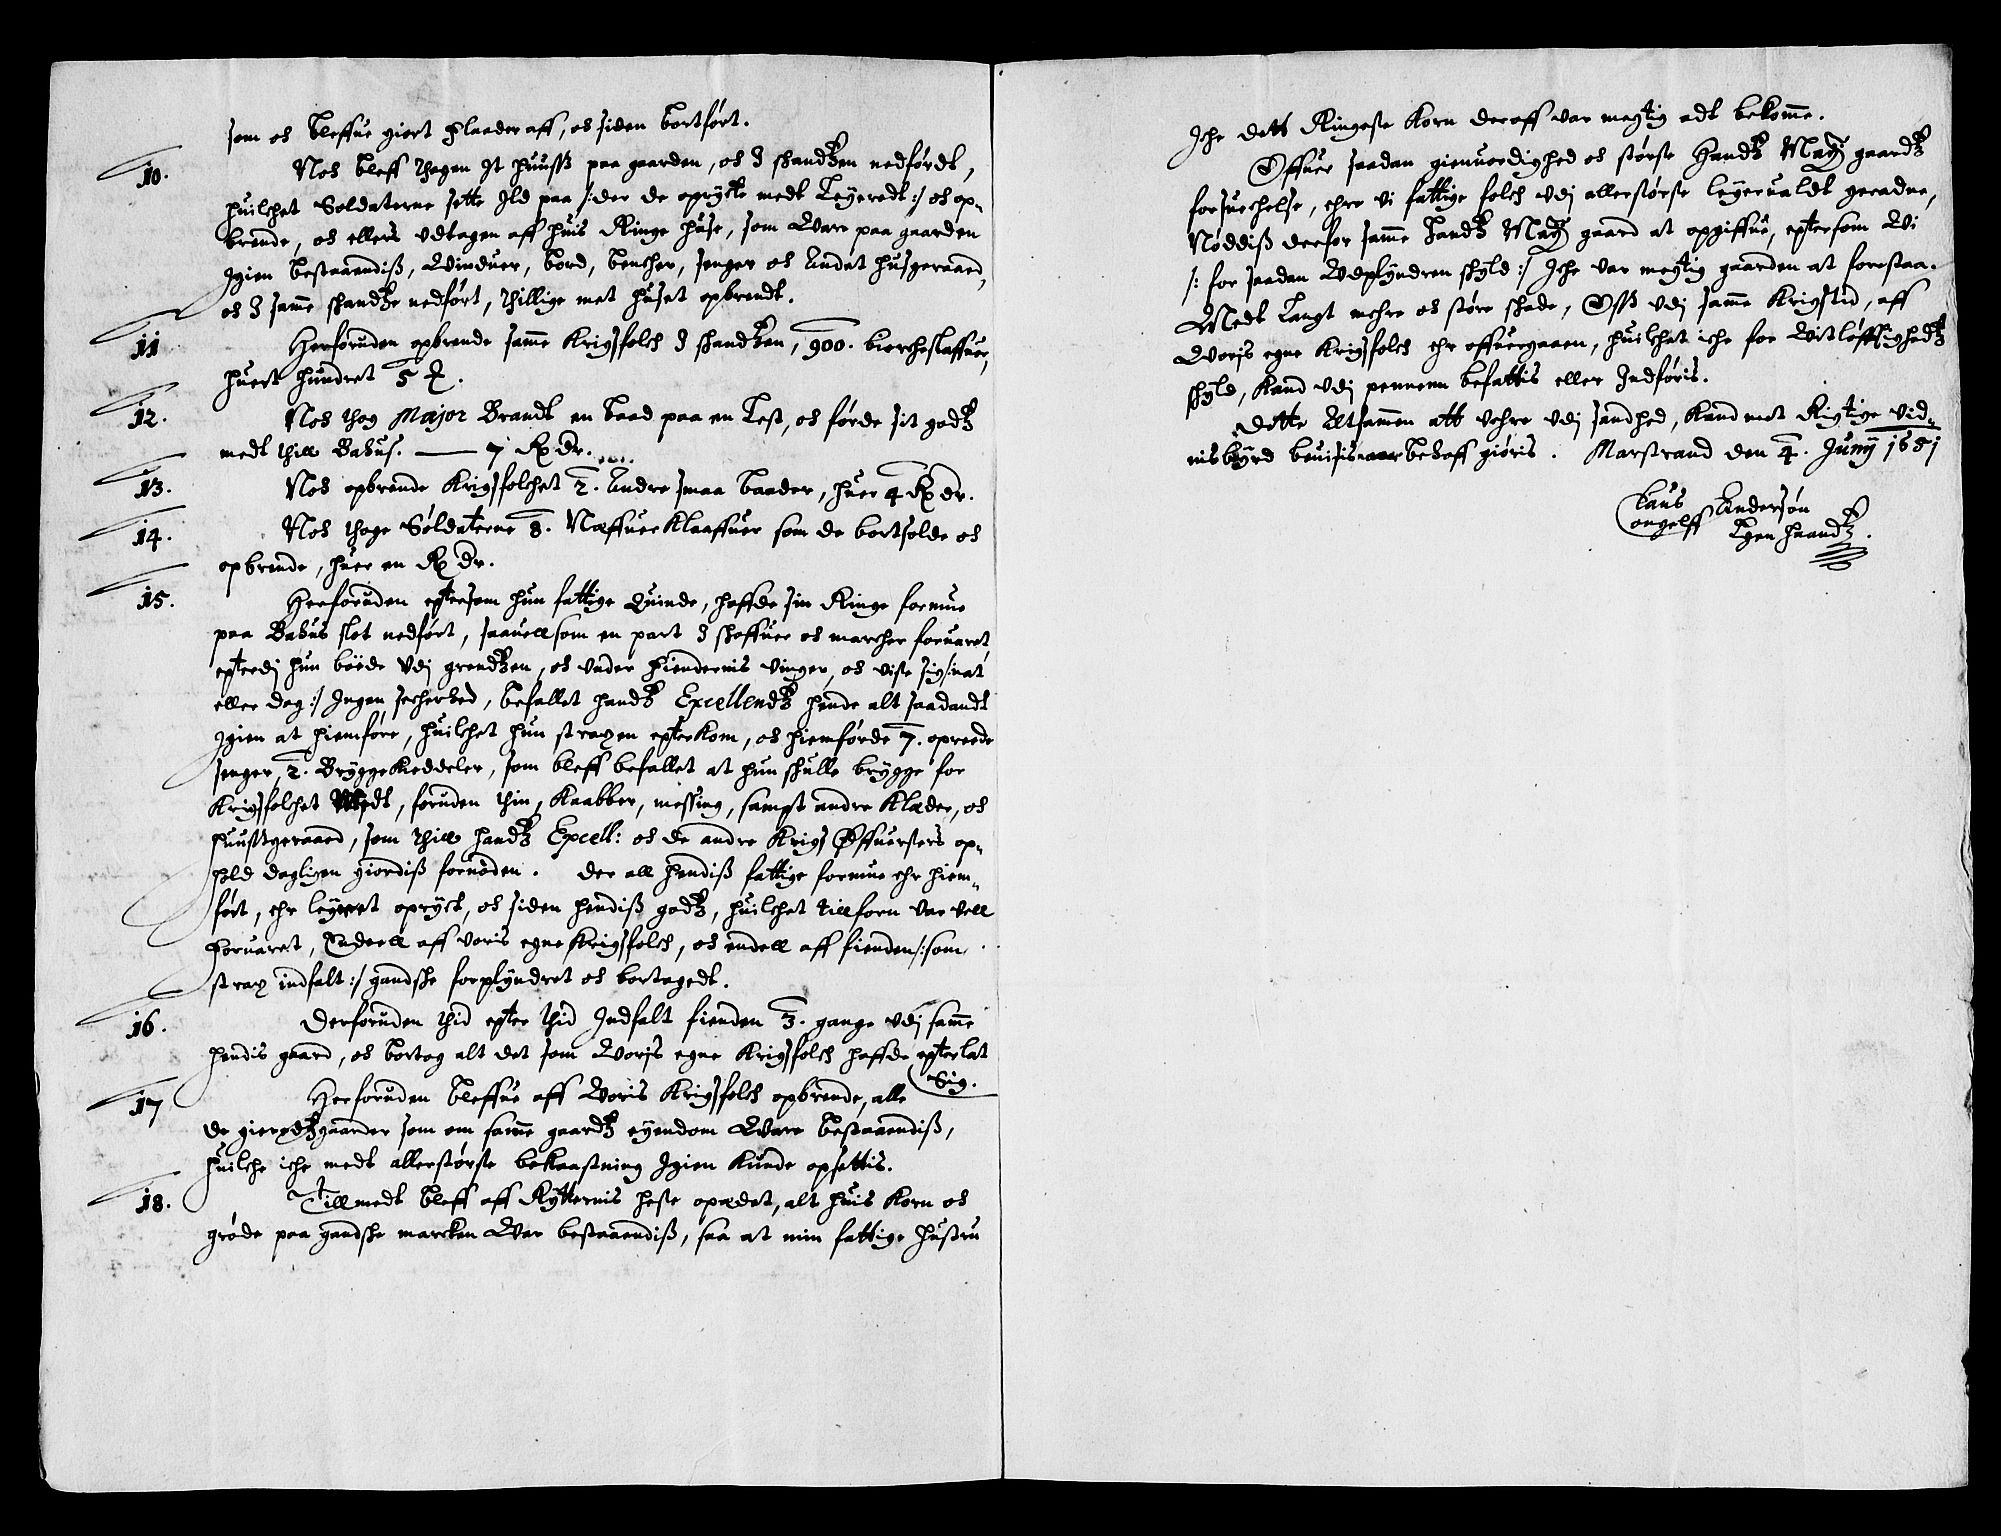 som och bleffue giort Flaader aff, och siden bortført.
10. Noch bleff thagen It huuss paa gaarden, och I skandtzen nedførdt,
huilchet Soldaterne sette Ild paa /: der de opryckte medt Leyeredt :/ och op-
brende, och ellers vdtagen aff huis Ringe huse, som Ware paa gaarden
Igien bestaaendiss, Winduer, bord, bencher, senger och Andet husgeraad,
och I samme skandtze nedført, thillige met huset opbrendt.
11 Herforuden opbrende samme Krigsfolch I skandtzen, 900. bierchestaffuer,
huert hundret 5
12. Noch thog Major Brandt en baad paa en Lest, och førde sit godtz
medt thill Bahus. — 7 Rx dr.
13. Noch opbrende Krigsfolchet 2. Andre smaa baader, huer 4 Rx dr.
14. Noch thoge Soldaterne 8. Næffuer Klaaffuer som de bortsolde och
opbrende, huer en Rx Dr.
15. Herforuden eptersom hun fattige Quinde, haffde sin Ringe formue
paa Bahus slot nedført, saauellsom en part I skoffuer och marcher foruaret,
epterdj hun boede Vdj grendtzen, och vnder fiendernis vinger, och viste sig /: nat
eller dag :/ Ingen secherhed, befallet handtz Excellendtz hende alt saadandt
Igien at hiemføre, huilchet hun straxen epterkom, och hiemførde 7. opreede
senger, 2. Bryggekieddeler, som bleff befallet at hun skulle brygge for
Krigsfolchet Medt, foruden thin, Kaabber, messing, sampt andre Klæder, och
huussgeraad, som thill handtz Excell: och de andre Krigs Øffuersters op-
hold dagligen giordiss fornøden. Der all hendiss fattige formue ehr hiem-
ført, ehr leyeret opryckt, och siden hendiss godtz, huilchet tillforn var vell
foruaret, Endeell aff voris egne Krigsfolch, och endell aff fienden /: som
strax indfalt :/ gandske forplyndret och bortagedt.
16. Derforuden thid epter thid Indfalt fienden 3. gange vdj samme
hendis gaard, och bortog alt det som Worjs egne Krigsfolch haffde epterlat
Sig.
17 Herforuden bleffue aff Woris Krigsfolch opbrende, alle
de gierdtzgaarder som om samme gaardtz eyendom Ware bestaaendiss,
huilche iche medt allerstørste bekaastning Igien kunde opsettis.
18. Tillmedt bleff aff Rytternis heste opædet, alt huis Korn och
grøde paa gandske marcken War bestaaendiss, saa at min fattige hustru
Iche dett Ringeste Korn deroff var megtig adt bekomme.
Offuer saadan gienuordighed och største Handtz Maytz gaardtz
forsuechelse, ehre vi fattige folch vdj allerstørste leyerualdt geradne,
Nøddiss derfor samme Handtz Maytz gaard at opgiffue, eptersom Wi
/: for saadan Vdplyndren skyld :/ Iche var megtig gaarden at forestaa.
Medt langt mehre och større skade, Oss vdj samme Krigstid, aff
Worjs egne Krigsfolch ehr offuergaaen, huilchet iche for Vitløfftighedtz
skyld, Kand vdj pennenn befattis eller Indføris.
Dette Altsammen att vehre vdj sandhed, Kand met Rigtige vid-
nisbyrd beuisis naar behoff giøris. Marstrand den 4. Junij 1651
Laus Andersøn
ongelff Egen haandtz.